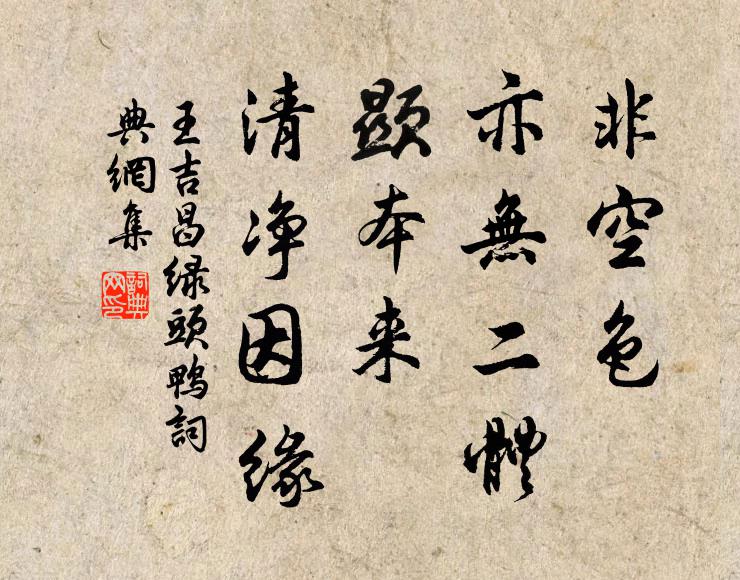 非空色
亦無二體
顯本来
清净因緣
王吉昌緑頭鴨詞
典網集
詞典网印